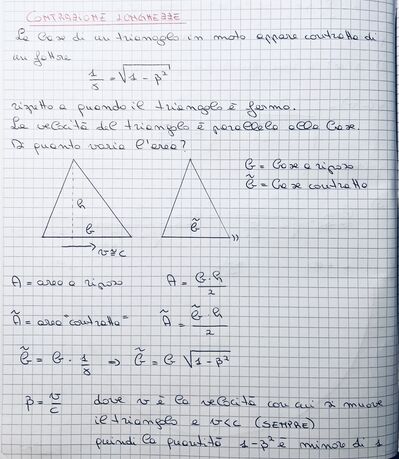 CONTRAZIONE LUNGHEZZE
La base di un triangolo in moto appare contratta di
un fattore
1/γ = √(1 - β²)
rispetto a quando il triangolo è fermo.
La velocità del triangolo è parallela alla base.
Di quanto varia l'area?
b = base a riposo
b̃ = base contratta
h
b
b̃
v≅c
A = area a riposo A = b·h/2
Ã = area "contratta" Ã = b̃·h/2
b̃ = b · 1/γ ⇒ b̃ = b √(1-β²)
β = v/c dove v è la velocità con cui si muove
il triangolo e v<c (SEMPRE)
quindi la quantità 1-β² è minore di 1